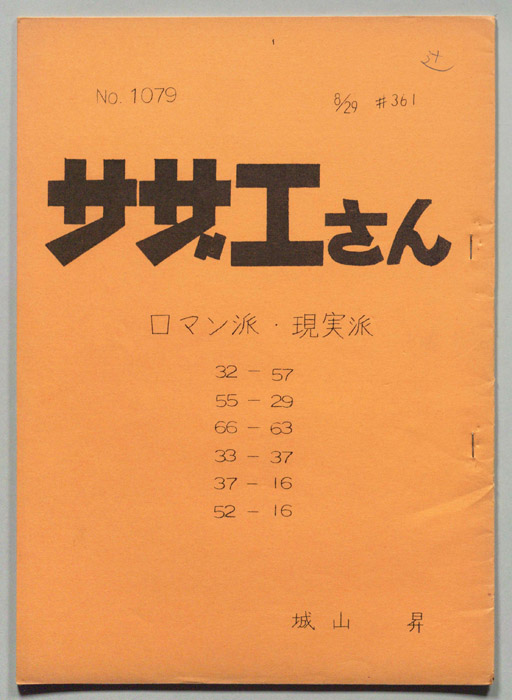 No. 1079
8/29 #361
サザエさん
ロマン派・現実派
32 - 57
55 - 29
66 - 63
33 - 37
37 - 16
52 - 16
城山 昇